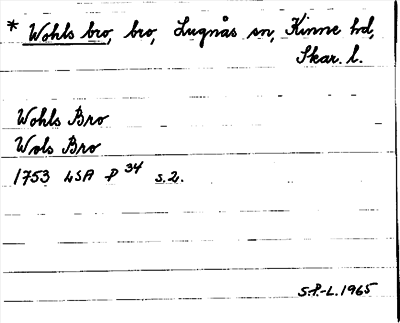 * Wohls bro, bro, Lugnås sn, Kinne hd,
Skar. l.
Wohls Bro
Wols Bro
1753 LSA P 34 s. 2.
S.P.-L. 1965